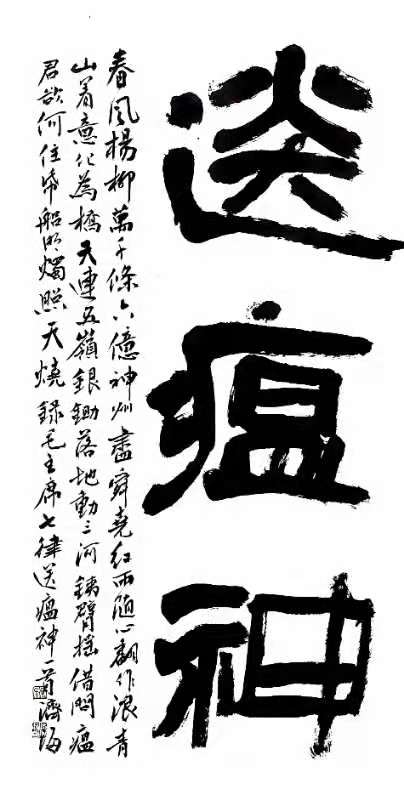 送瘟神
春风楊柳萬千條六億神州盡舜堯紅雨随心翻作浪青
山着意化為橋天連五嶺銀鋤落地動三河鐵臂摇借問瘟
君欲何往帋船明燭照天燒録毛主席七律送瘟神一首濟海